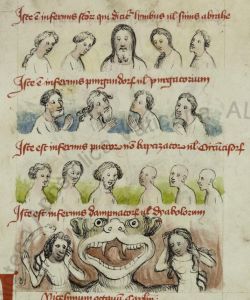 Iste e infernus sctor qui dicit limbus ul sinus abrahe
Iste e infernus purgandor ul purgatorium
Iste est infernus pueror no baptizator ul
Iste est infernus dampnator ul dyabolorum